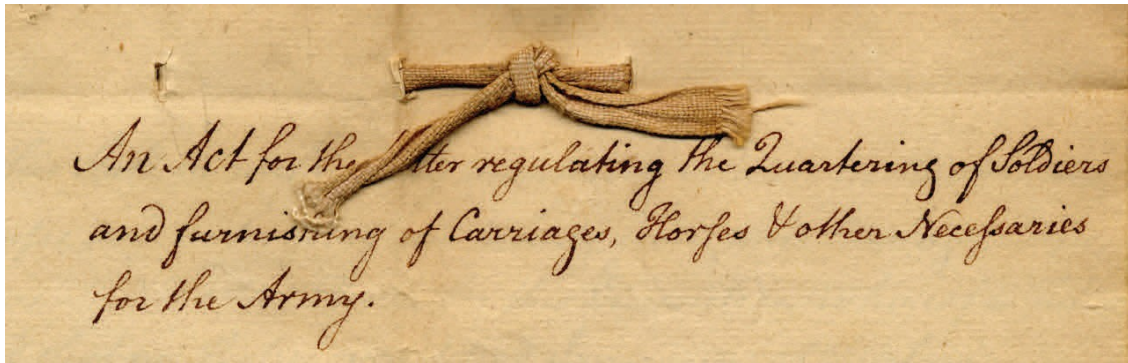 An Act for the better regulating the Quartering of Soldiers
and furnishing of Carriages, Horſes & other Neceſsaries
for the Army.